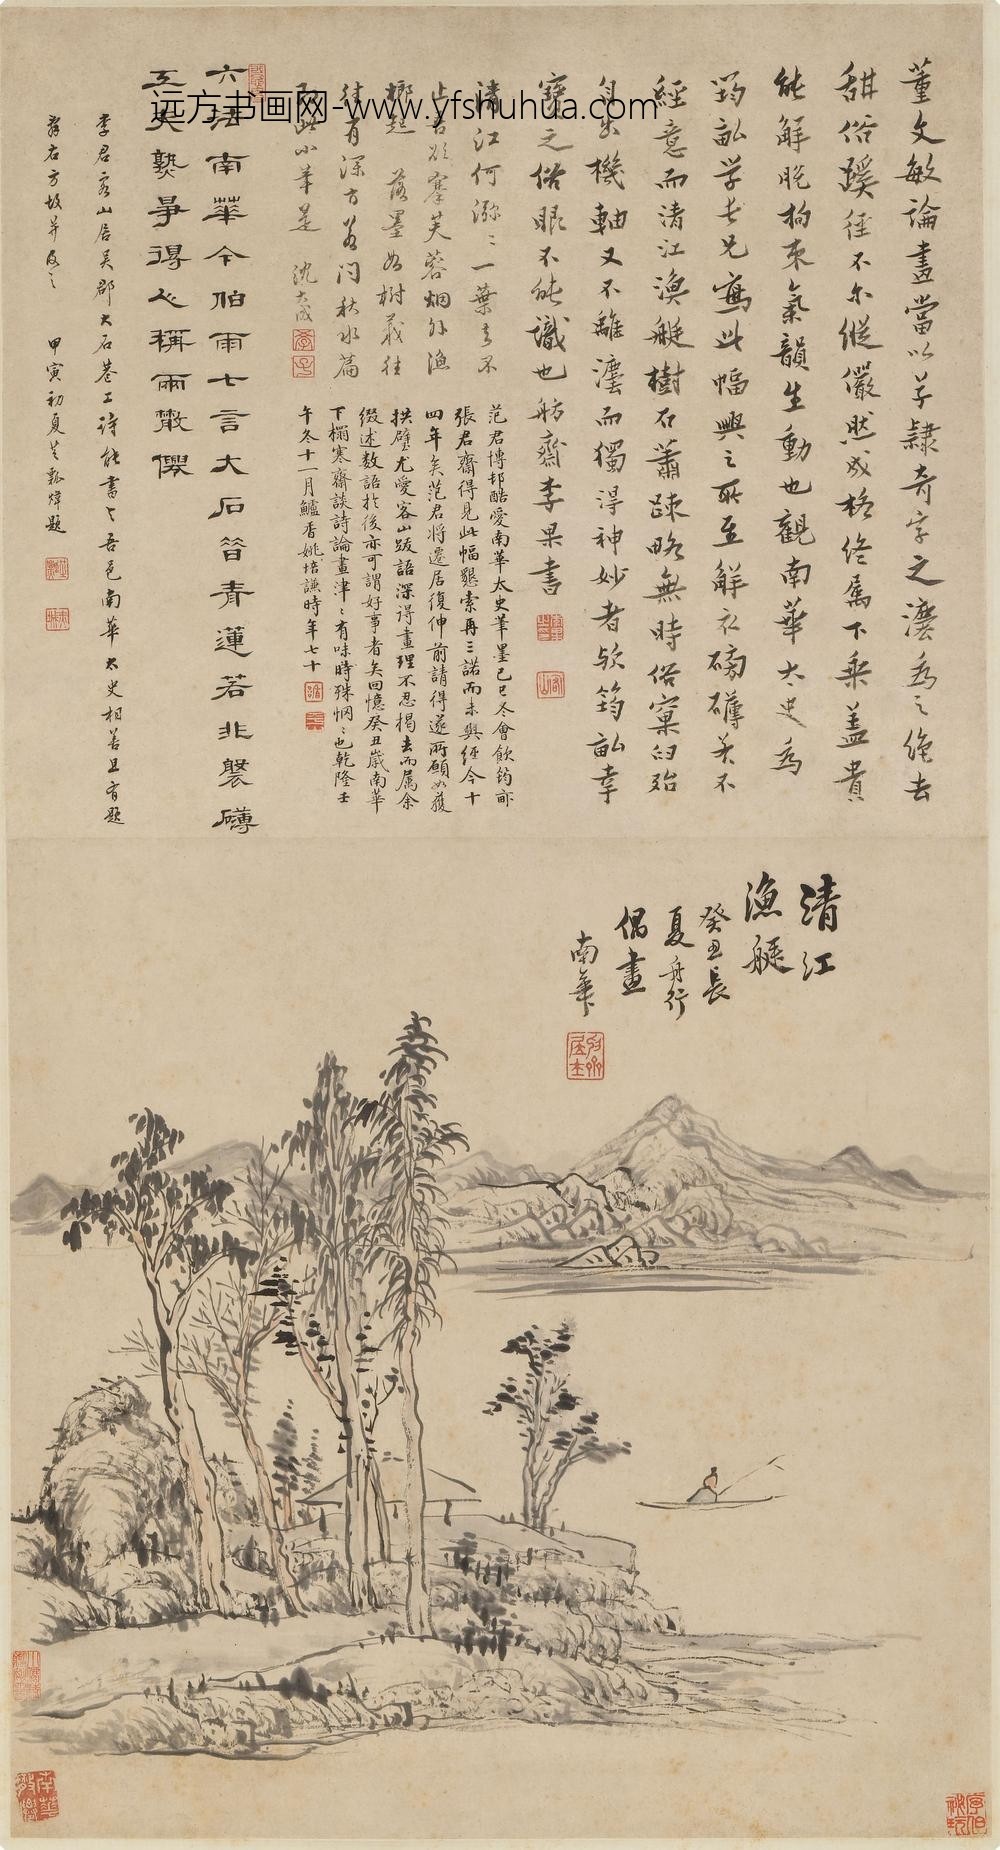 远方书画网-www.yfshuhua.com
董文敏論畫當以草隸奇字之灋為之絶去
甜俗蹊徑不尔縱儼然成格終属下乘蓋貴
能解脱拘束氣韻生動也觀南華太史為
筠畝学長兄寫此幅興之所至解衣磅礴若不
經意而清江漁艇樹石蕭疎略無時俗窠臼殆
自出機軸又不離灋而獨得神妙者欤筠畝幸
寶之俗眼不能識也舫齋李果書
清江何瀰瀰一葉去不
止吾欲搴芙蓉烟外漁
榔起 落墨如樹義往
往有深方若问秋水篇
即此小筆是 沈大成
范君博邨酷愛南華太史筆墨己巳冬會飲筠畝
張君齋得見此幅懇索再三諾而未與經今十
四年矣范君将遷居復伸前請得遂所願如獲
拱璧尤愛客山跋語深得畫理不忍揭去而属余
缀述数語於後亦可謂好事者矣回憶癸丑歲南華
下榻寒齋談詩論畫津津有味時殊惘惘也乾隆壬
午冬十一月鱸香姚培謙時年七十
六法南華今伯雨七言大石晉青蓮若非槃礴
互失熟爭得人稱兩散僊
李君客山居吴郡大石巷工詩能書與吾邑南華太史相善且有題
并右方故并及之 甲寅初夏 題
清江
漁艇
癸丑長
夏舟行
偶畫
南華